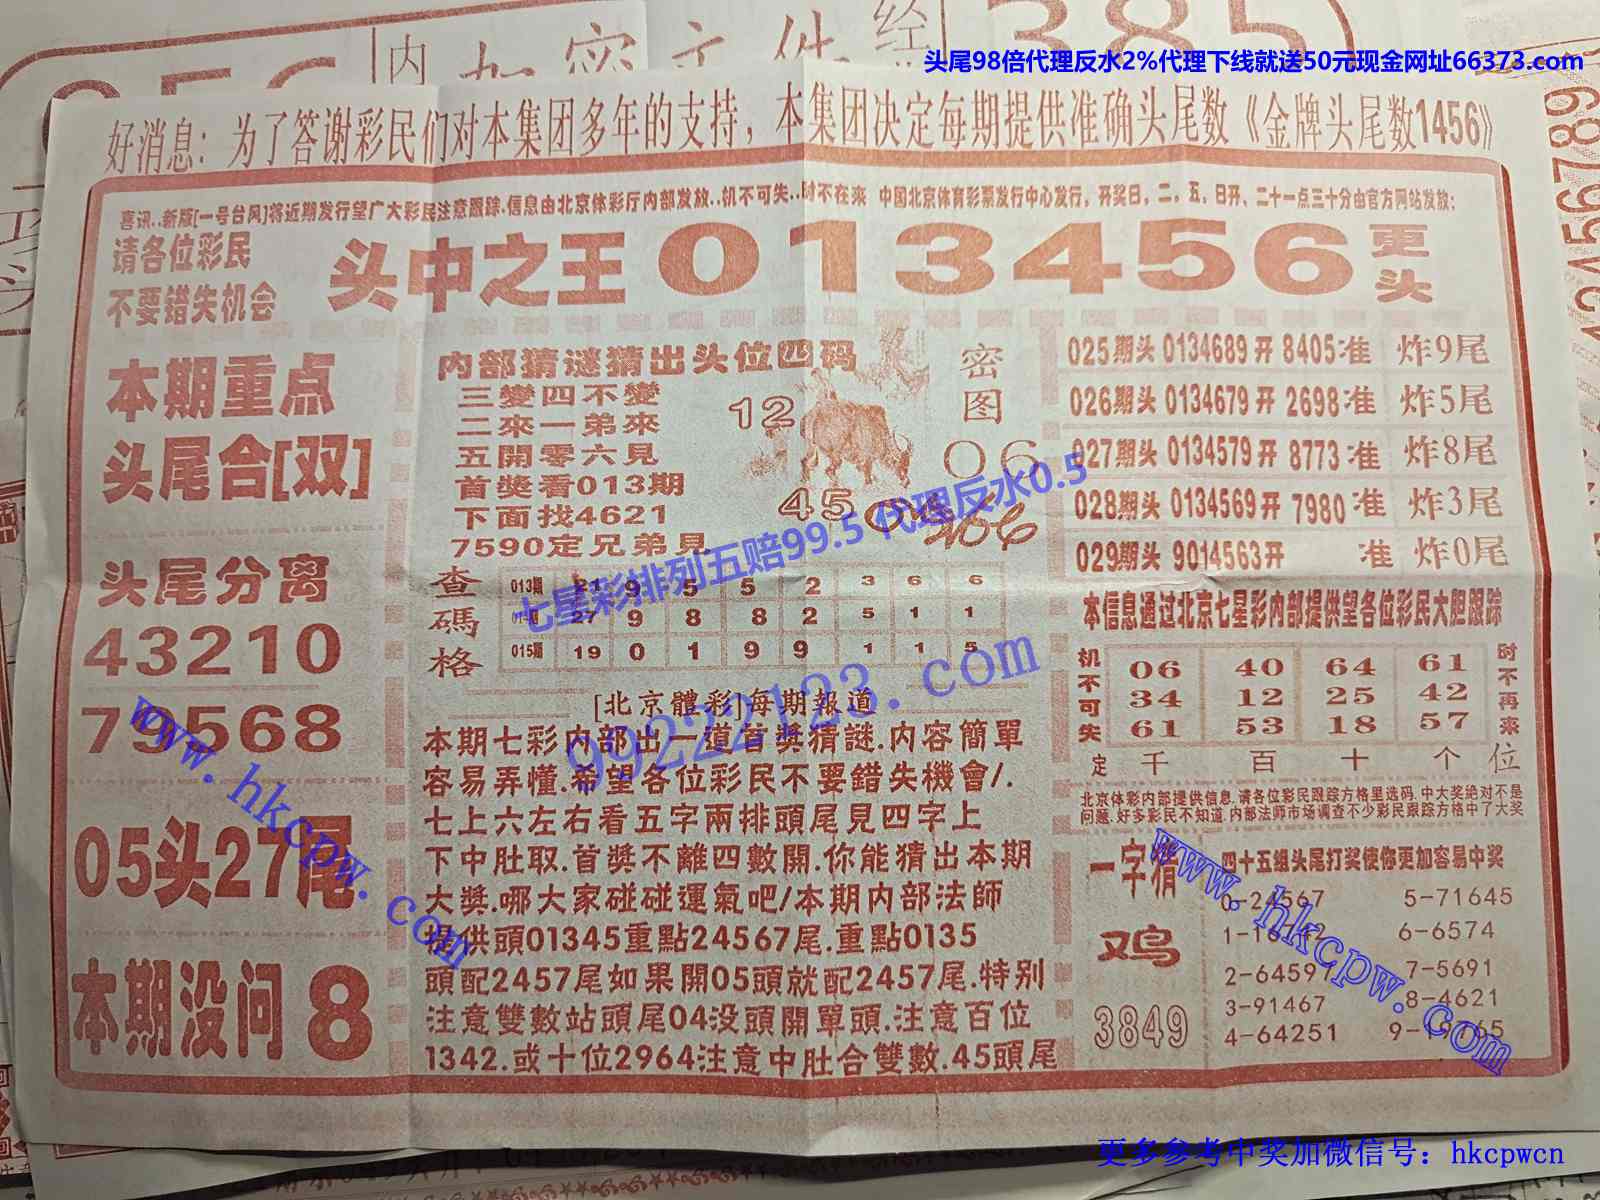 头尾98倍代理反水2%代理下线就送50元现金网址66373.com
内 加密文件 经 385
好消息：为了答谢彩民们对本集团多年的支持，本集团决定每期提供准确头尾数《金牌头尾数1456》
喜讯..新版[一号台风]将近期发行望广大彩民注意跟踪.信息由北京体彩厅内部发放..机不可失..时不在来 中国北京体育彩票发行中心发行，开奖日，二，五，日开，二十一点三十分由官方网站发放：
请各位彩民
不要错失机会
头中之王013456更头
本期重点
头尾合[双]
头尾分离
43210
79568
05头27尾
本期没问8
内部猜谜猜出头位四码
三變四不變
二來一弟來
五開零六見
首獎看013期
下面找4621
7590定兄弟見
密图
12
06
45
七星彩排列五赔99.5 代理反水0.5
查碼格
013期 21 9 5 5 2 3 6 6
014期 27 9 8 8 2 5 1 1
015期 19 0 1 9 9 1 1 5
99222123.com
[北京體彩]每期報道
本期七彩内部出一道首獎猜謎.内容簡單
容易弄懂.希望各位彩民不要錯失機會/.
七上六左右看五字兩排頭尾見四字上
下中肚取.首獎不離四數開.你能猜出本期
大獎.哪大家碰碰運氣吧/本期内部法師
提供頭01345重點24567尾.重點0135
頭配2457尾如果開05頭就配2457尾.特别
注意雙數站頭尾04没頭開單頭.注意百位
1342.或十位2964注意中肚合雙數.45頭尾
025期头 0134689开 8405准 炸9尾
026期头 0134679开 2698准 炸5尾
027期头 0134579开 8773准 炸8尾
028期头 0134569开 7980准 炸3尾
029期头 9014563开 准 炸0尾
本信息通过北京七星彩内部提供望各位彩民大胆跟踪
机不可失
06 40 64 61
34 12 25 42
61 53 18 57
时不再来
定 千 百 十 个 位
北京体彩内部提供信息.请各位彩民跟踪方格里选码.中大奖绝对不是
问题.好多彩民不知道.内部法师市场调查不少彩民跟踪方格中了大奖
一字猜
鸡
3849
四十五组头尾打奖使你更加容易中奖
0-24567 5-71645
6-6574
2-64597 7-5691
3-91467 8-4621
4-64251
www.hkcpw.com
www.hkcpw.com
更多参考中奖加微信号：hkcpwcn